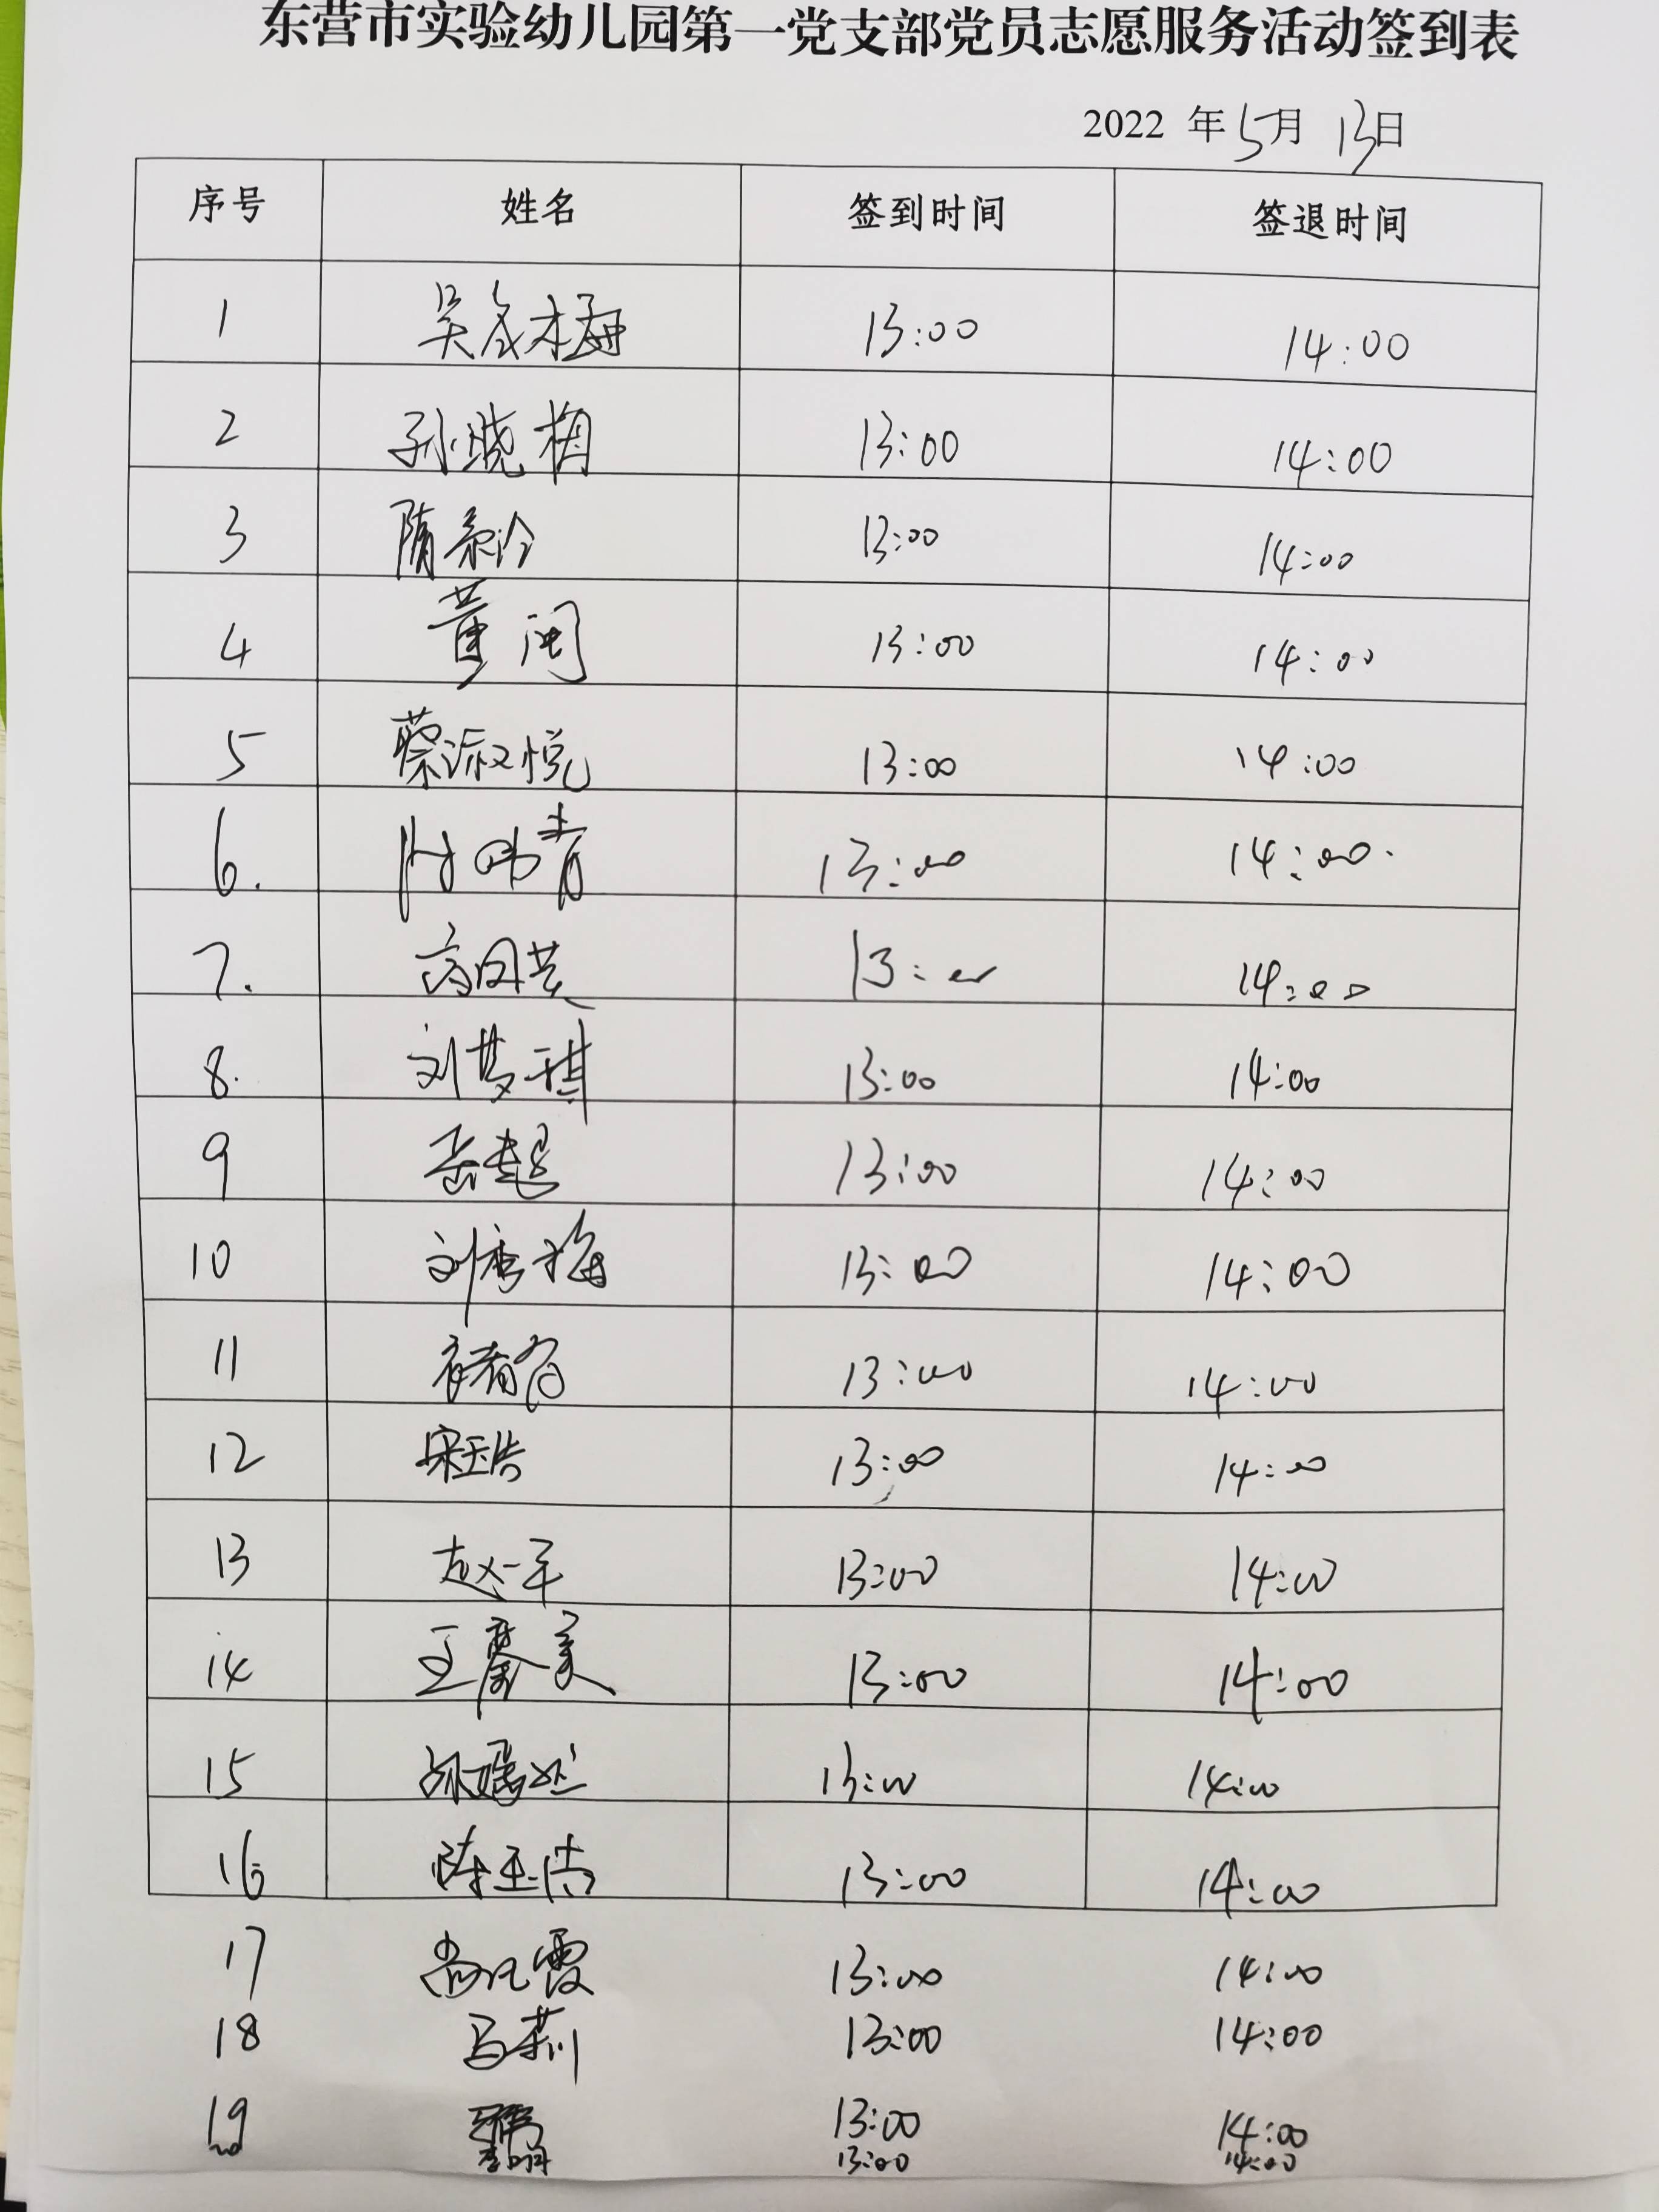 东营市实验幼儿园第一党支部党员志愿服务活动签到表
2022 年 5月 13日
序号 姓名 签到时间 签退时间
1 吴冬梅 13:00 14:00
2 孙晓梅 13:00 14:00
3 隋 13:00 14:00
4 黄闽 13:00 14:00
5 蔡淑悦 13:00 14:00
6. 青 13:00 14:00.
7. 高凤芸 13:00 14:00
8. 刘梦琪 13:00 14:00
9 岳超 13:00 14:00
10 刘秀梅 13:00 14:00
11 13:00 14:00
12 宋玉洁 13:00 14:00
13 赵一平 13:00 14:00
14 王馨美 13:00 14:00
15 孙 13:00 14:00
16 陈玉洁 13:00 14:00
17 尚凡霞 13:00 14:00
18 马莉 13:00 14:00
19 13:00 14:00
20 李明 13:00 14:00